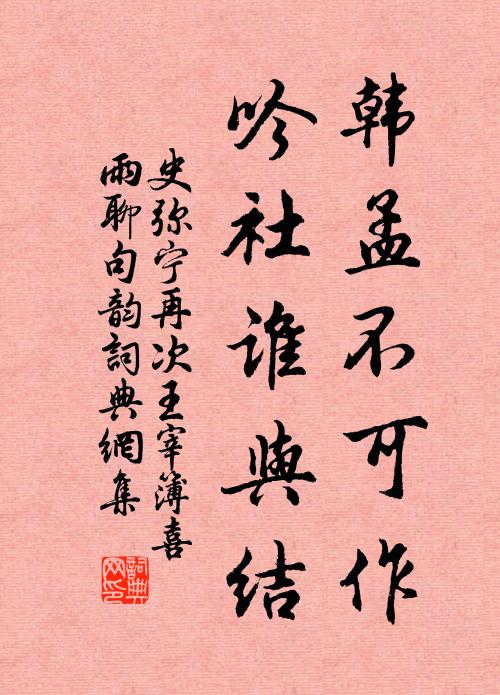 韩孟不可作
吟社谁與结
史弥宁再次王宰簿喜
雨聊句韵詞典網集
詞典
网印